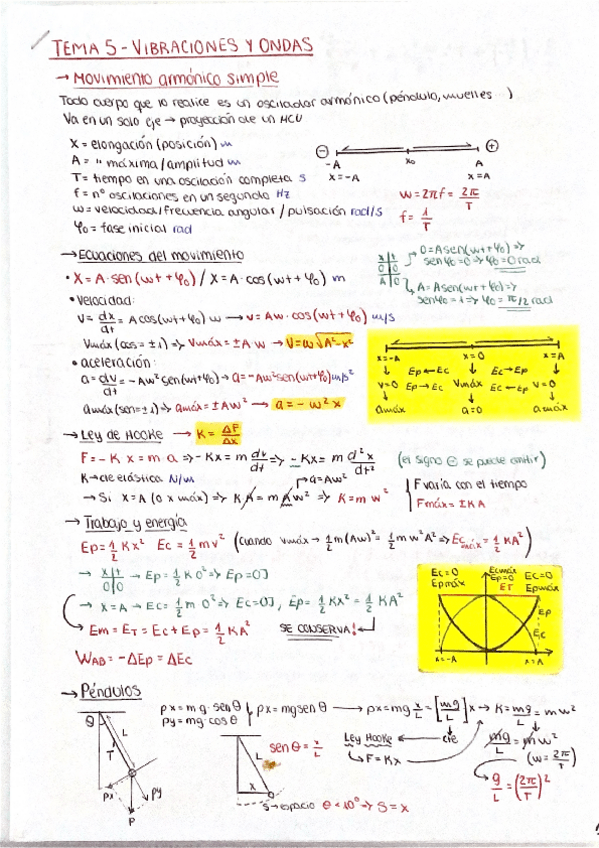 TEMA 5 - VIBRACIONES Y ONDAS
→ Movimiento armónico simple
Todo cuerpo que lo realice es un oscilador armónico (péndulo, muelles )
Va en un solo eje → proyección de un MCU
X = elongación (posición) m
A = " máxima/amplitud m
T = tiempo en una oscilación completa s
f = nº oscilaciones en un segundo Hz
w = velocidad/frecuencia angular/pulsación rad/s
φ₀ = fase inicial rad
⊖ ⊕
-A x₀ A
x=-A x=A
w = 2πf = 2π/T
f = 1/T
→ Ecuaciones del movimiento
• X = A·sen(wt+φ₀) / X = A·cos(wt+φ₀) m
x | t
0 | 0 → 0 = A sen(wt+φ₀) => senφ₀ = 0 => φ₀ = 0 rad
A | 0 → A = A sen(wt+φ₀) => senφ₀ = 1 => φ₀ = π/2 rad
• Velocidad:
v = dx/dt = A cos(wt+φ₀) w → v = Aw·cos(wt+φ₀) m/s
Vmáx (cos = ±1) => Vmáx = ±A w → V = w√A²-x²
• aceleración:
a = dv/dt = -Aw² sen(wt+φ₀) → a = -Aw² sen(wt+φ₀) m/s²
amáx (sen = ±1) → amáx = ±Aw² → a = -w² x
x=-A x=0 x=A
Ep→Ec Ec→Ep
V=0 Ep→Ec Vmáx Ec←Ep V=0
amáx a=0 amáx
→ Ley de HOOKE → K = ΔF/Δx
F = -K x = m a => -Kx = m dv/dt => -Kx = m d²x/dt² (el signo ⊖ se puede omitir)
K → cte elástica N/m
a = Aw²
→ Si X = A (o x máx) => K A = m A w² => K = m w²
F varía con el tiempo
Fmáx = ±KA
→ Trabajo y energía
Ep = 1/2 Kx² Ec = 1/2 mv² (cuando vmáx → 1/2 m(Aw)² = 1/2 m w² A² => Ec máx = 1/2 KA²)
→ x | t
0 | 0 → Ep = 1/2 K0² => Ep = 0J
→ x = A → Ec = 1/2 m 0² => Ec = 0J, Ep = 1/2 Kx² = 1/2 KA²
→ Em = ET = Ec + Ep = 1/2 KA² SE CONSERVA!
W_AB = -ΔEp = ΔEc
Ec=0 Ecmáx Ec=0
Epmáx Ep=0 Epmáx
ET
Ep
Ec
x=-A x=A
→ Péndulos
px = mg·senθ
py = mg·cosθ
px = mg senθ → px = mg x/L = [mg/L] x → K = mg/L = mw²
θ
L
T
px
py
P
L
x
senθ = x/L
Ley Hooke ← cte
→ F = Kx
mg/L = m w²
(w = 2π/T)
g/L = (2π/T)²
S → espacio θ < 10° → S = x